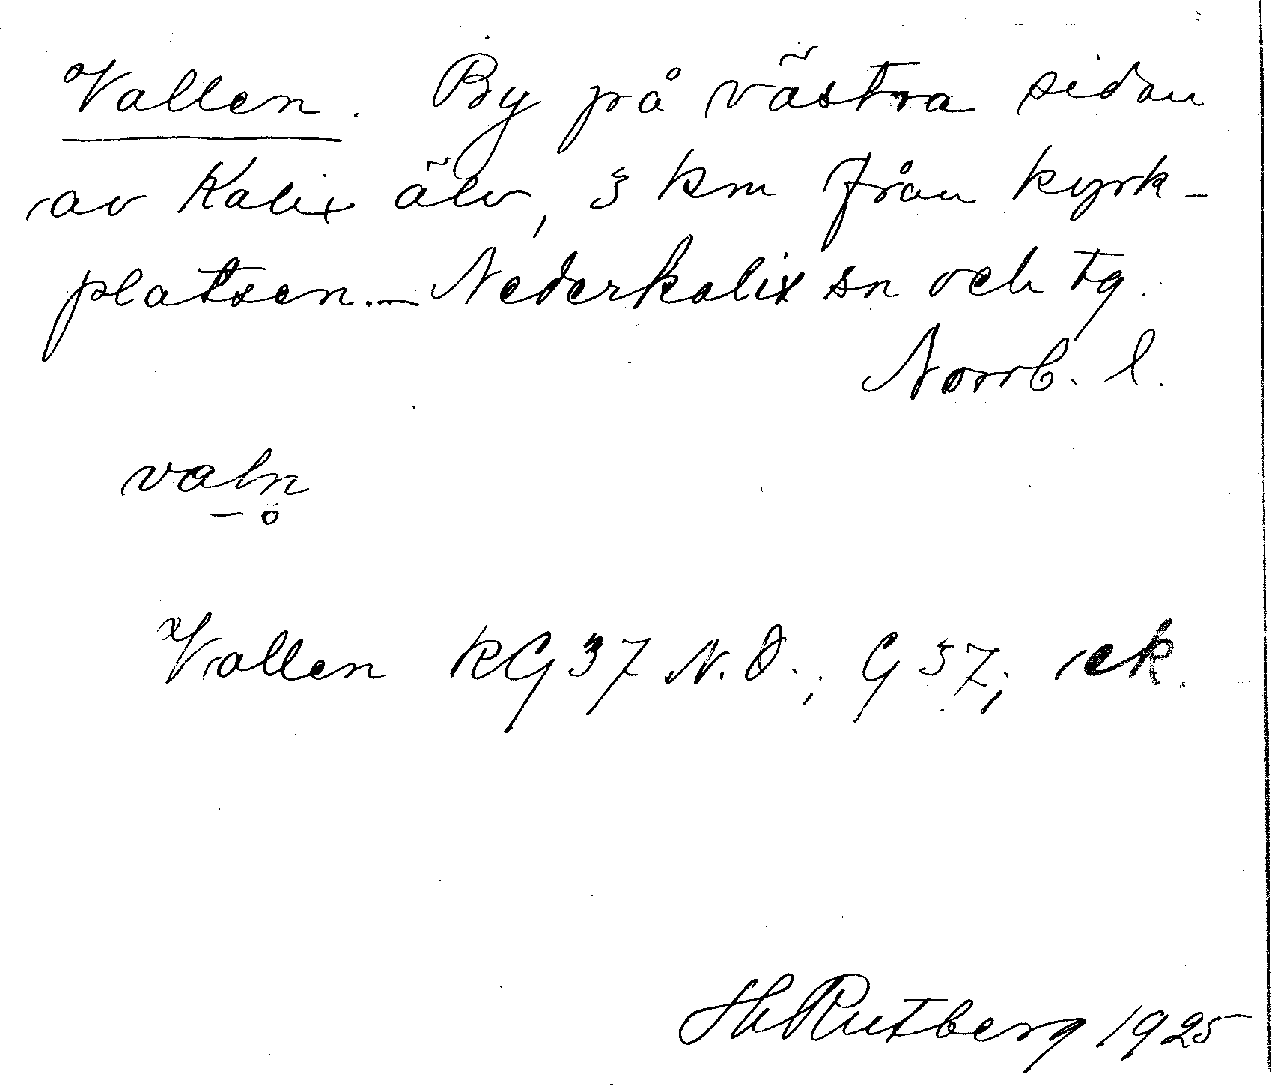 Vallen. By på västra sidan
av Kalix älv, 3 km från kyrk-
platsen. — Nederkalix sn och tg.
Norrb. l.
valn
Vallen KG 37 N.O., G 37, ek.
H Rutberg 1925